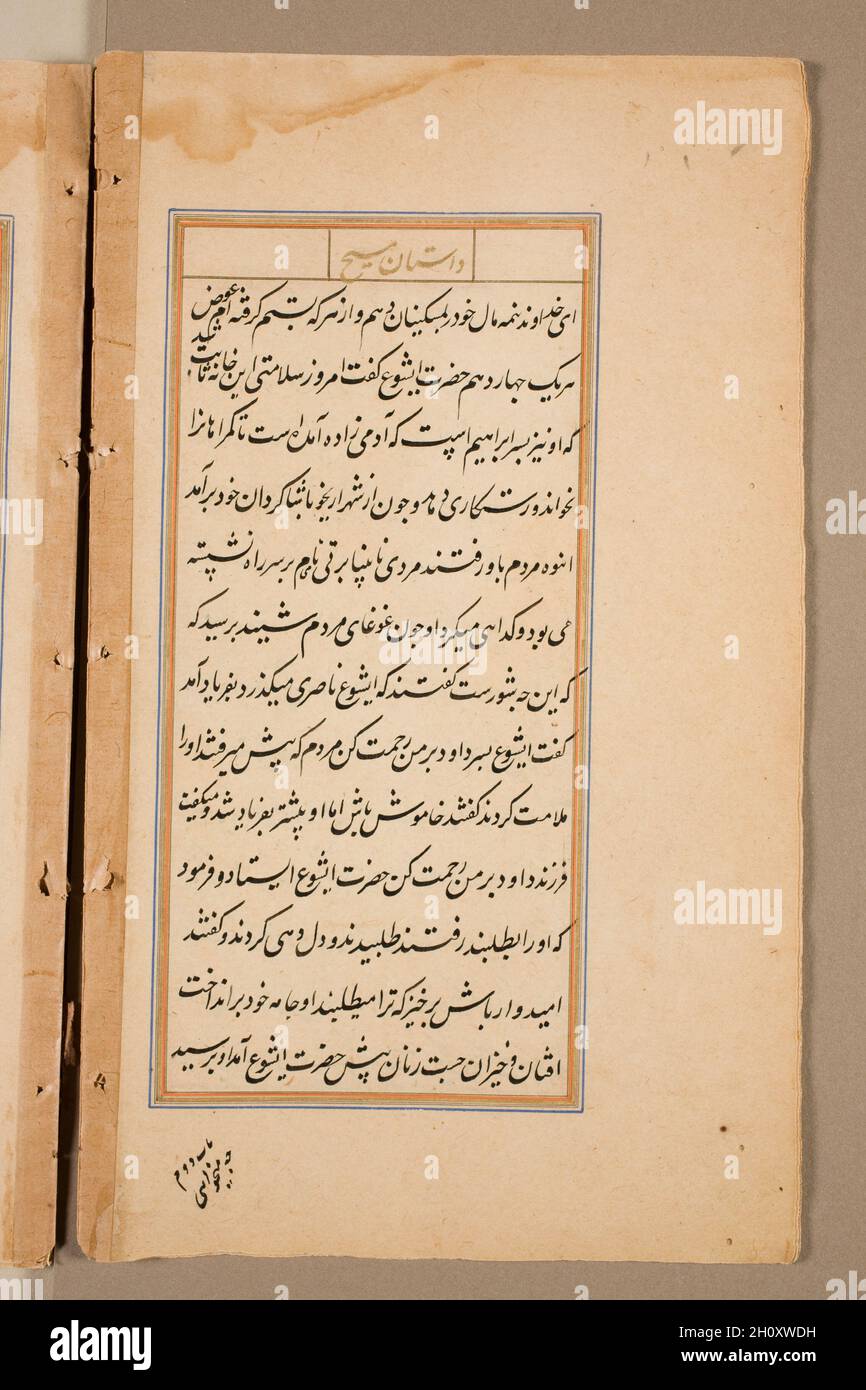 داستان مسیح
ای خداوند نیمه مال خود را بمسکینان دهم و از هر که بستم گرفته ام عوض
هر یک چهار دهم حضرت ایشوع گفت امروز سلامتی این خانه ثابت شد
که او نیز پسر ابراهیم است که آدمی زاده آمده است تا گمراهانرا
بخواند و رستگاری دهد و چون از شهر اریخو با شاگردان خود برآمد
انبوه مردم باو رفتند مردی نابینا برتی نام بر سر راه نشسته
می بود و گداهی میکرد او چون غوغای مردم شنید پرسید که
که این چه شورست گفتند که ایشوع ناصری میگذرد بفریاد آمد
گفت ایشوع پسر داود بر من رحمت کن مردم که پیش میرفتند او را
ملامت کردند گفتند خاموش باش اما او بیشتر بفریاد شد و میگفت
فرزند داود بر من رحمت کن حضرت ایشوع ایستاد و فرمود
که او را بطلبند رفتند طلبیدند و دل دهی کردند و گفتند
امیدوار باش برخیز که ترا میطلبند او جامه خود برانداخت
افتان و خیزان جست زنان پیش حضرت ایشوع آمد او پرسید
چه میخواهی
باب دوم
alamy
alamy
Image ID: 2H0XWDH
www.alamy.com